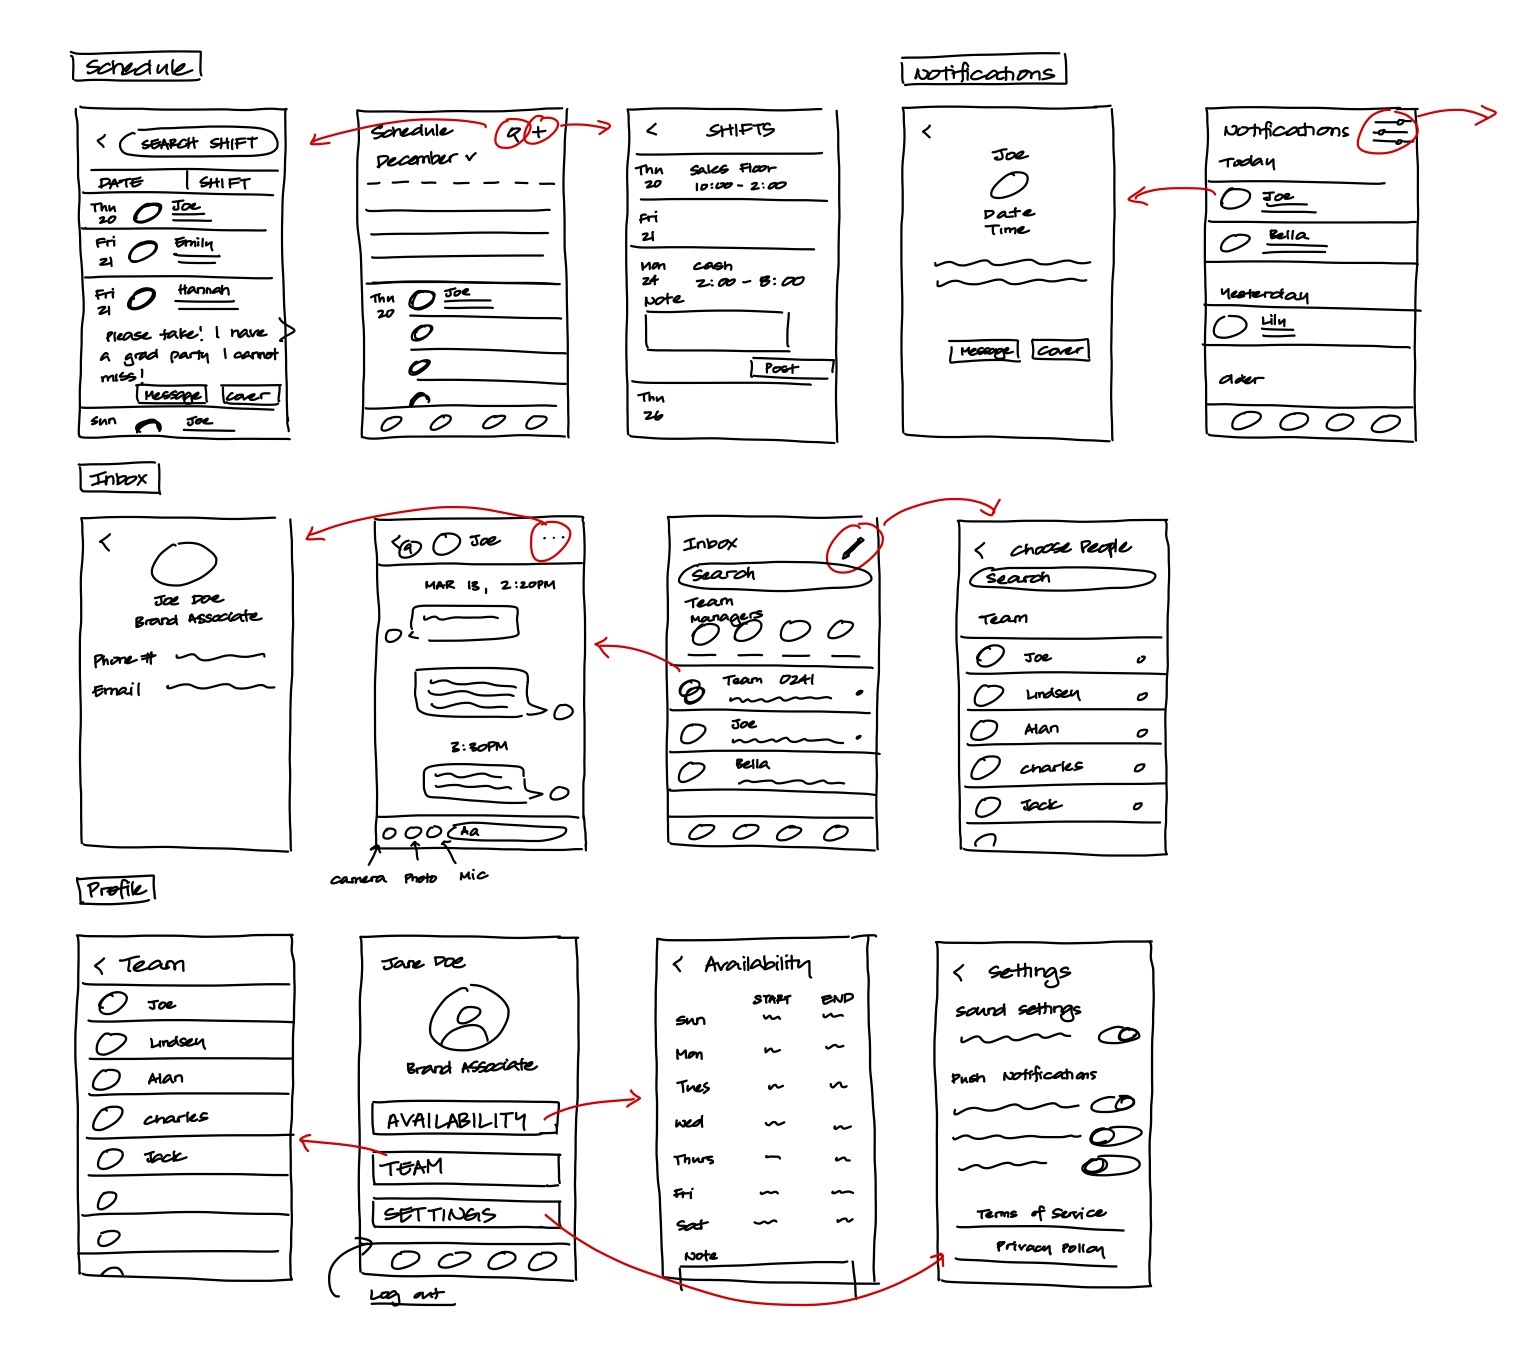 Schedule
SEARCH SHIFT
DATE SHIFT
Thu 20 Joe
Fri 21 Emily
Fri 21 Hannah
Please take! I have
a grad party I cannot
miss!
Message Cover
Sun Joe
Schedule
December
Thu 20 Joe
SHIFTS
Thu 20 Sales Floor
10:00 - 2:00
Fri 21
Mon 24 Cash
2:00 - 8:00
Note
Post
Thu 26
Notifications
Joe
Date
Time
Message Cover
Notifications
Today
Joe
Bella
Yesterday
Lily
Older
Inbox
Joe Doe
Brand Associate
Phone #
Email
Joe
MAR 13, 2:20PM
3:30PM
Aa
Camera Photo Mic
Inbox
Search
Team
Managers
Team 0241
Joe
Bella
Choose People
Search
Team
Joe
Lindsey
Alan
Charles
Jack
Profile
Team
Joe
Lindsey
Alan
Charles
Jack
Jane Doe
Brand Associate
AVAILABILITY
TEAM
SETTINGS
Log out
Availability
START END
Sun
Mon
Tues
Wed
Thurs
Fri
Sat
Note
Settings
Sound Settings
Push Notifications
Terms of Service
Privacy Policy